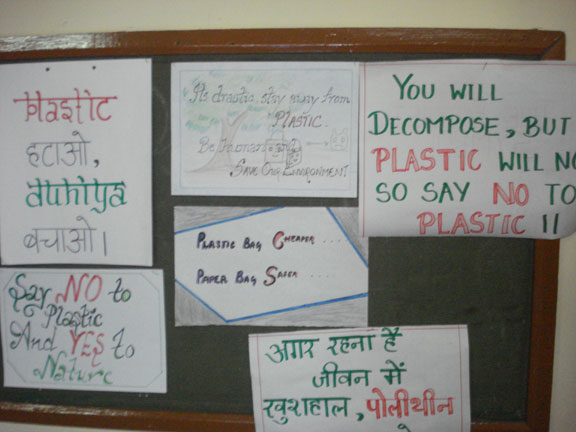 Plastic
हटाओ,
duniya
बचाओ।
It's drastic, stay away from
PLASTIC.
SAVE OUR ENVIRONMENT
YOU WILL
DECOMPOSE, BUT
PLASTIC WILL NO
SO SAY NO TO
PLASTIC !!
PLASTIC BAG CHEAPER ....
PAPER BAG SAFER ....
Say NO to
Plastic
And YES to
Nature
अगर रहना है
जीवन में
खुशहाल, पोलीथीन